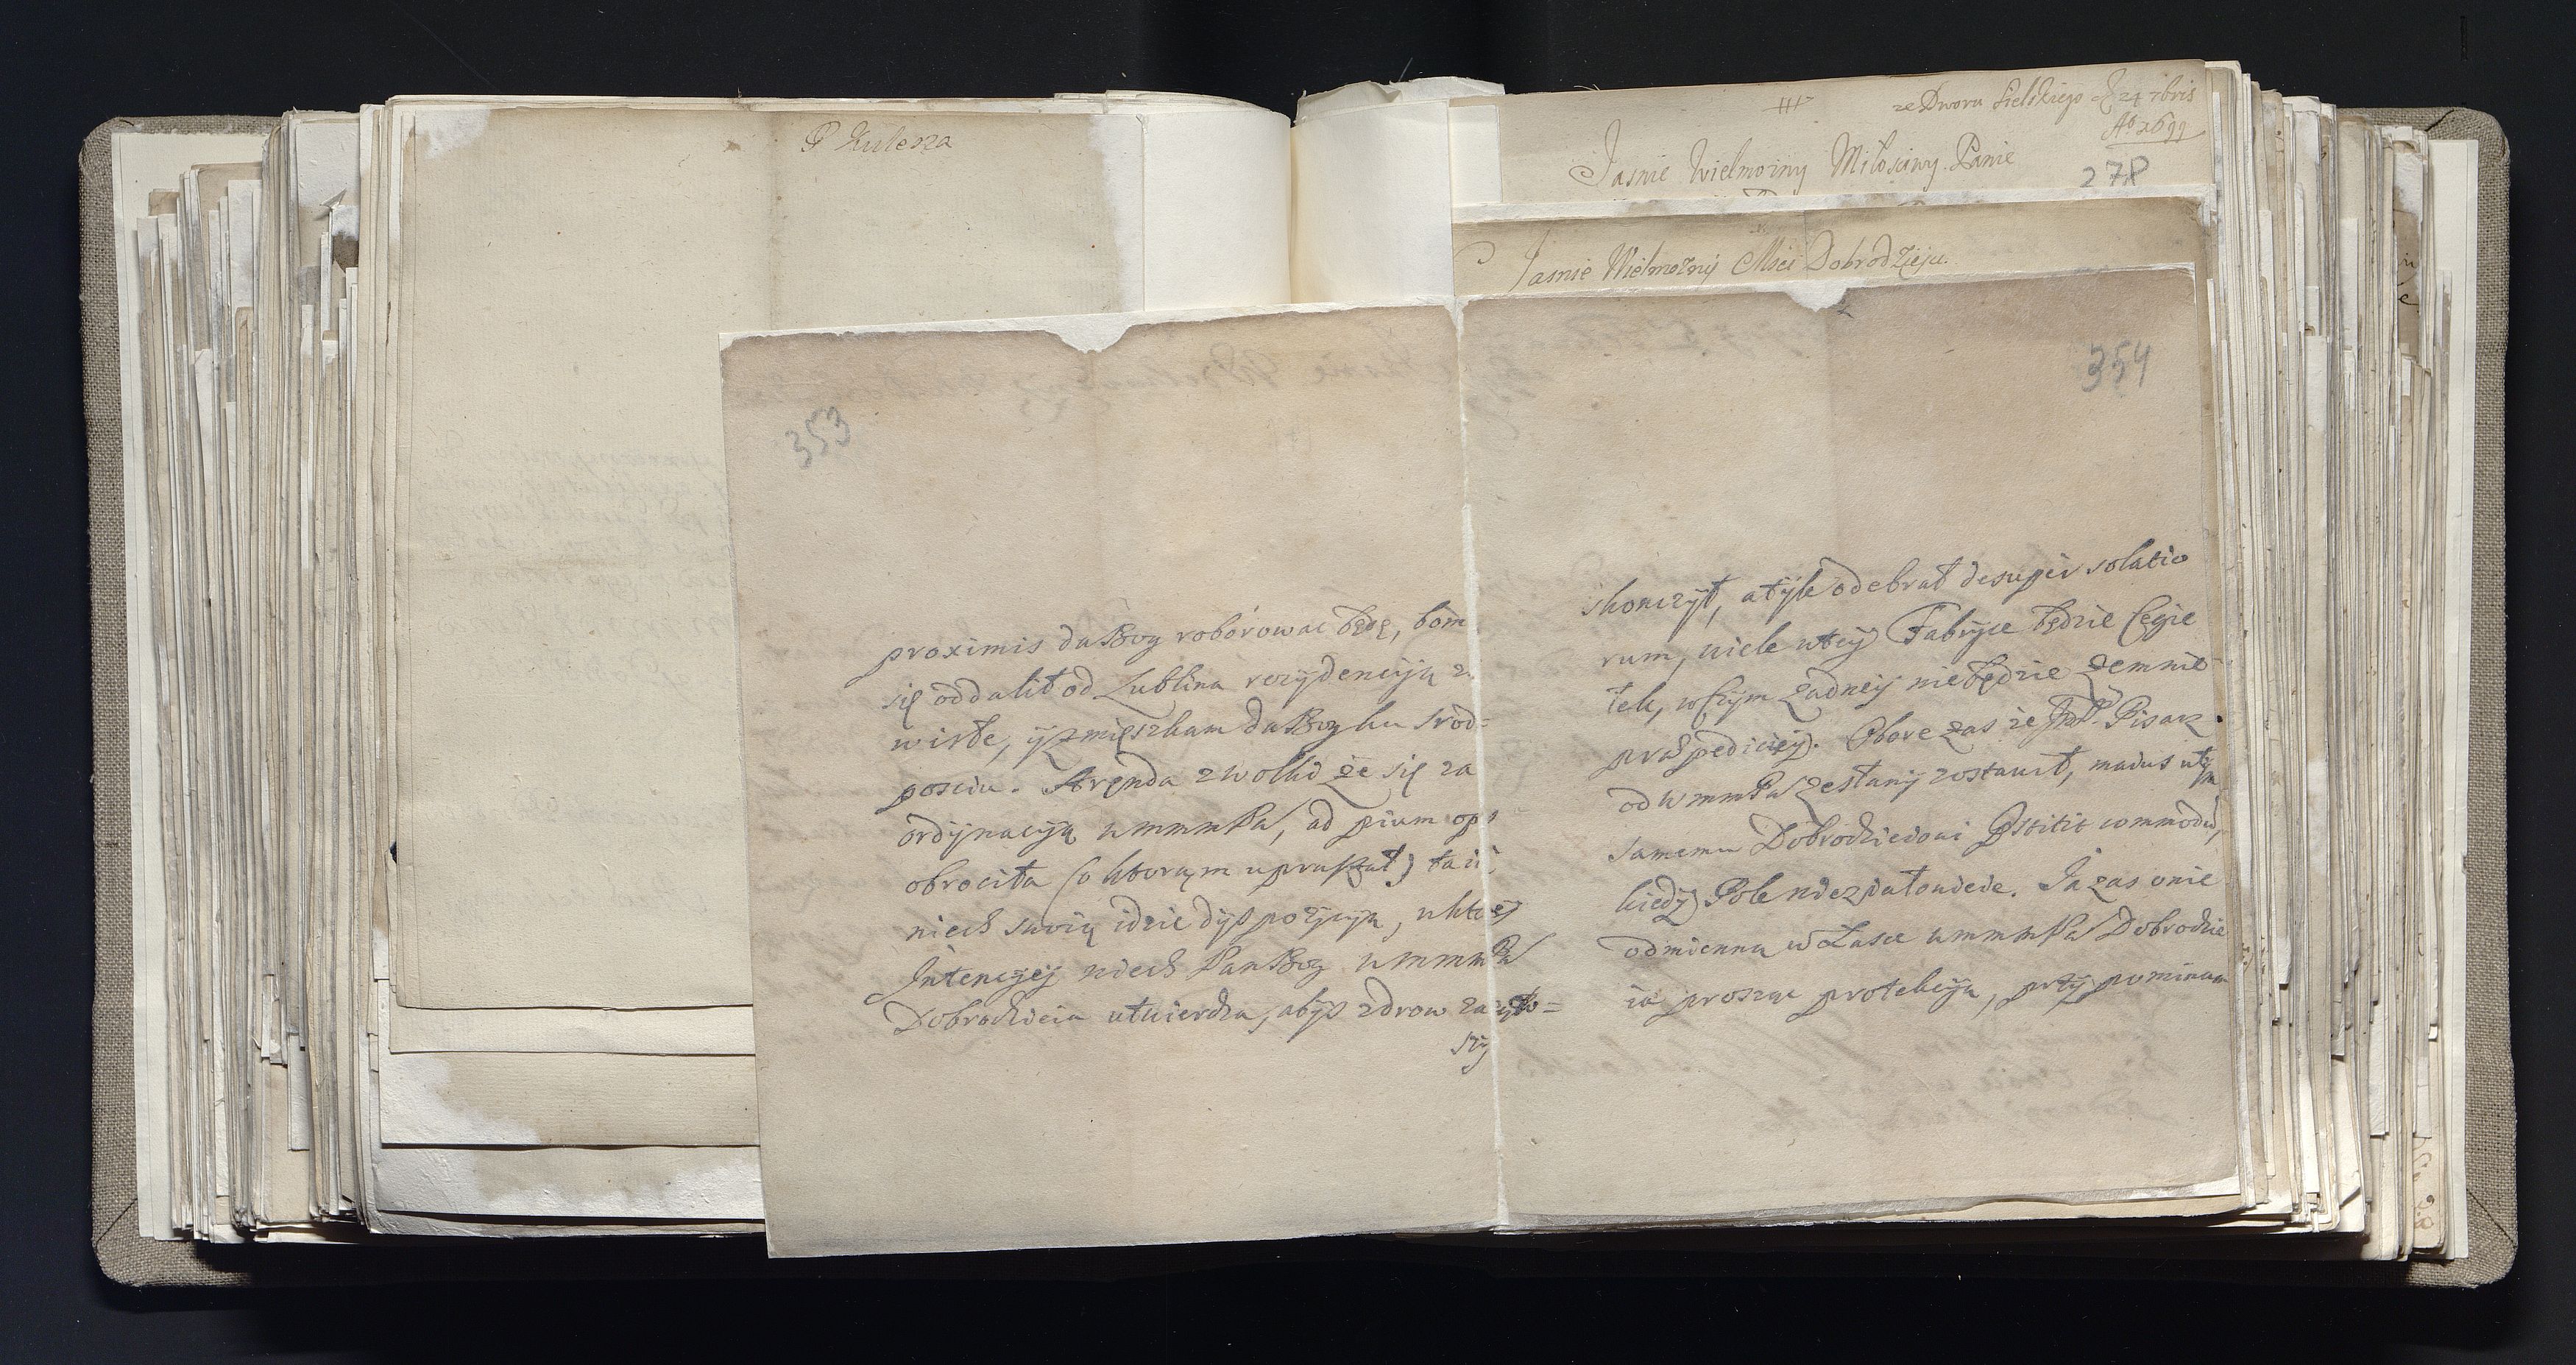 P Kulesza
ze Dworu Sielskiego d. 24 7bris
Ao 1699
Jasnie Wielmozny Miłosciwy Panie
278
Jasnie Wielmozny Msci Dobrodzieju.
353
proximis da Bog roborowac będę, bom
się oddalił od Lublina rezydencyją
wisłe, y zmięszkam da Bog ku Srod=
posciu. Aręnda z wolki że się za
ordynacyją wmmmPa, ad pium
obrociła (o ktorąm upraszał)
niech swoią idzie dyspozycyją, w ktorey
Intencyey niech Pan Bog wmmmPa
Dobrodzieia utwierdza, abys zdrow
354
skonczył, a tyle odebrał desuper solatio
rum, wiele w tey Fabryce będzie Cegie
łek, w czym żadney nie będzie zemnie
praepediciey. Obore zas ze Jmć P. Pisarz
od wmmmPa zesłany zostawił, maius w tym
samemu Dobrodzieiowi pstitit commodu,
kiedy Pole niezpatowicie. Ja zas o nie
odmienną w Łasce wmmmPa Dobrodzie
ia prosząc protekcyją, przypominam